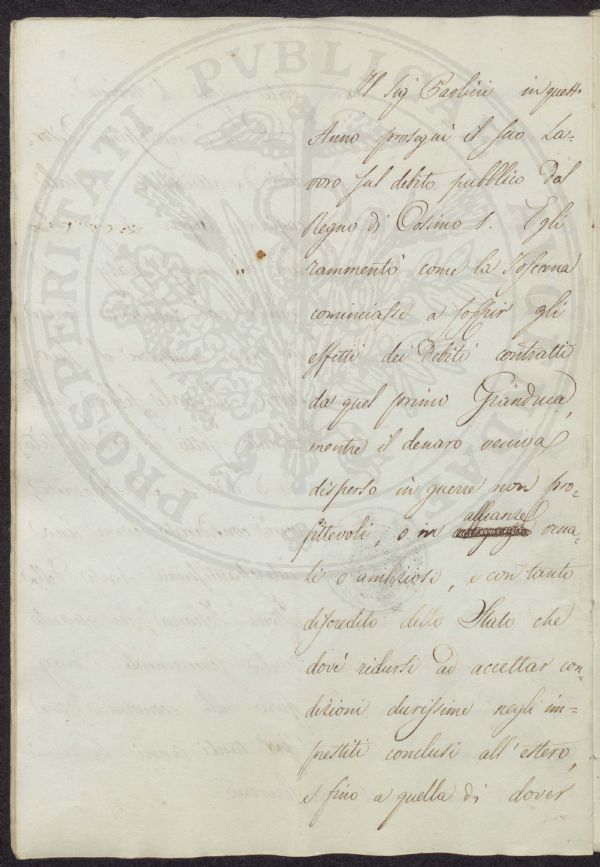 PROSPERITATI PVBLICAE
Il Sig Paolini in quest'
Anno proseguì il suo La-
voro sul debito pubblico dal
Regno di Cosimo I. Egli
rammentò come la Toscana
cominciasse a soffrir gli
effetti dei debiti contratti
da quel primo Granduca,
mentre il denaro veniva
disperso in guerre non pro-
fittevoli, o in alleanze
o ambiziose, e con tanto
discredito dello Stato che
dovè ridursi ad accettar con-
dizioni durissime negli im-
prestiti conclusi all'estero,
e fino a quella di dover